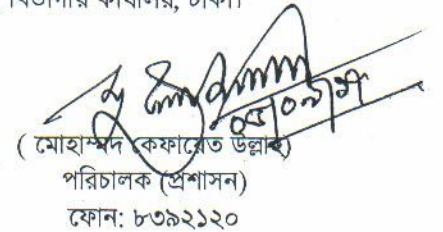 বিভাগীয় কার্যালয়, ঢাকা।
( মোহাম্মদ কেফায়েত উল্লাহ)
পরিচালক (প্রশাসন)
ফোন: ৮৩৯২১২০